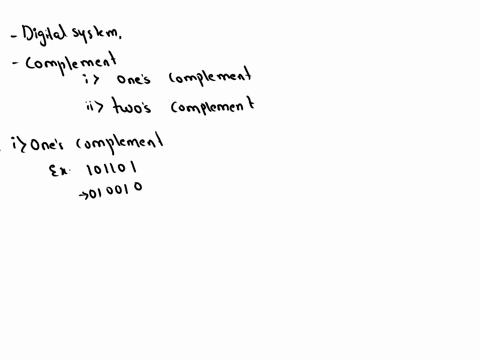 - Digital system.
- Complement
i> one's complement
ii> two's complement
i> One's complement
Ex. 101101
→ 010010